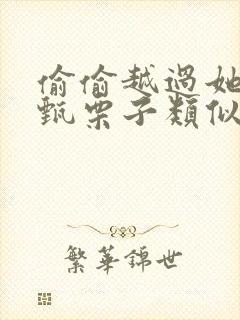 偷偷越過她
甄栗子類似
繁華錦世